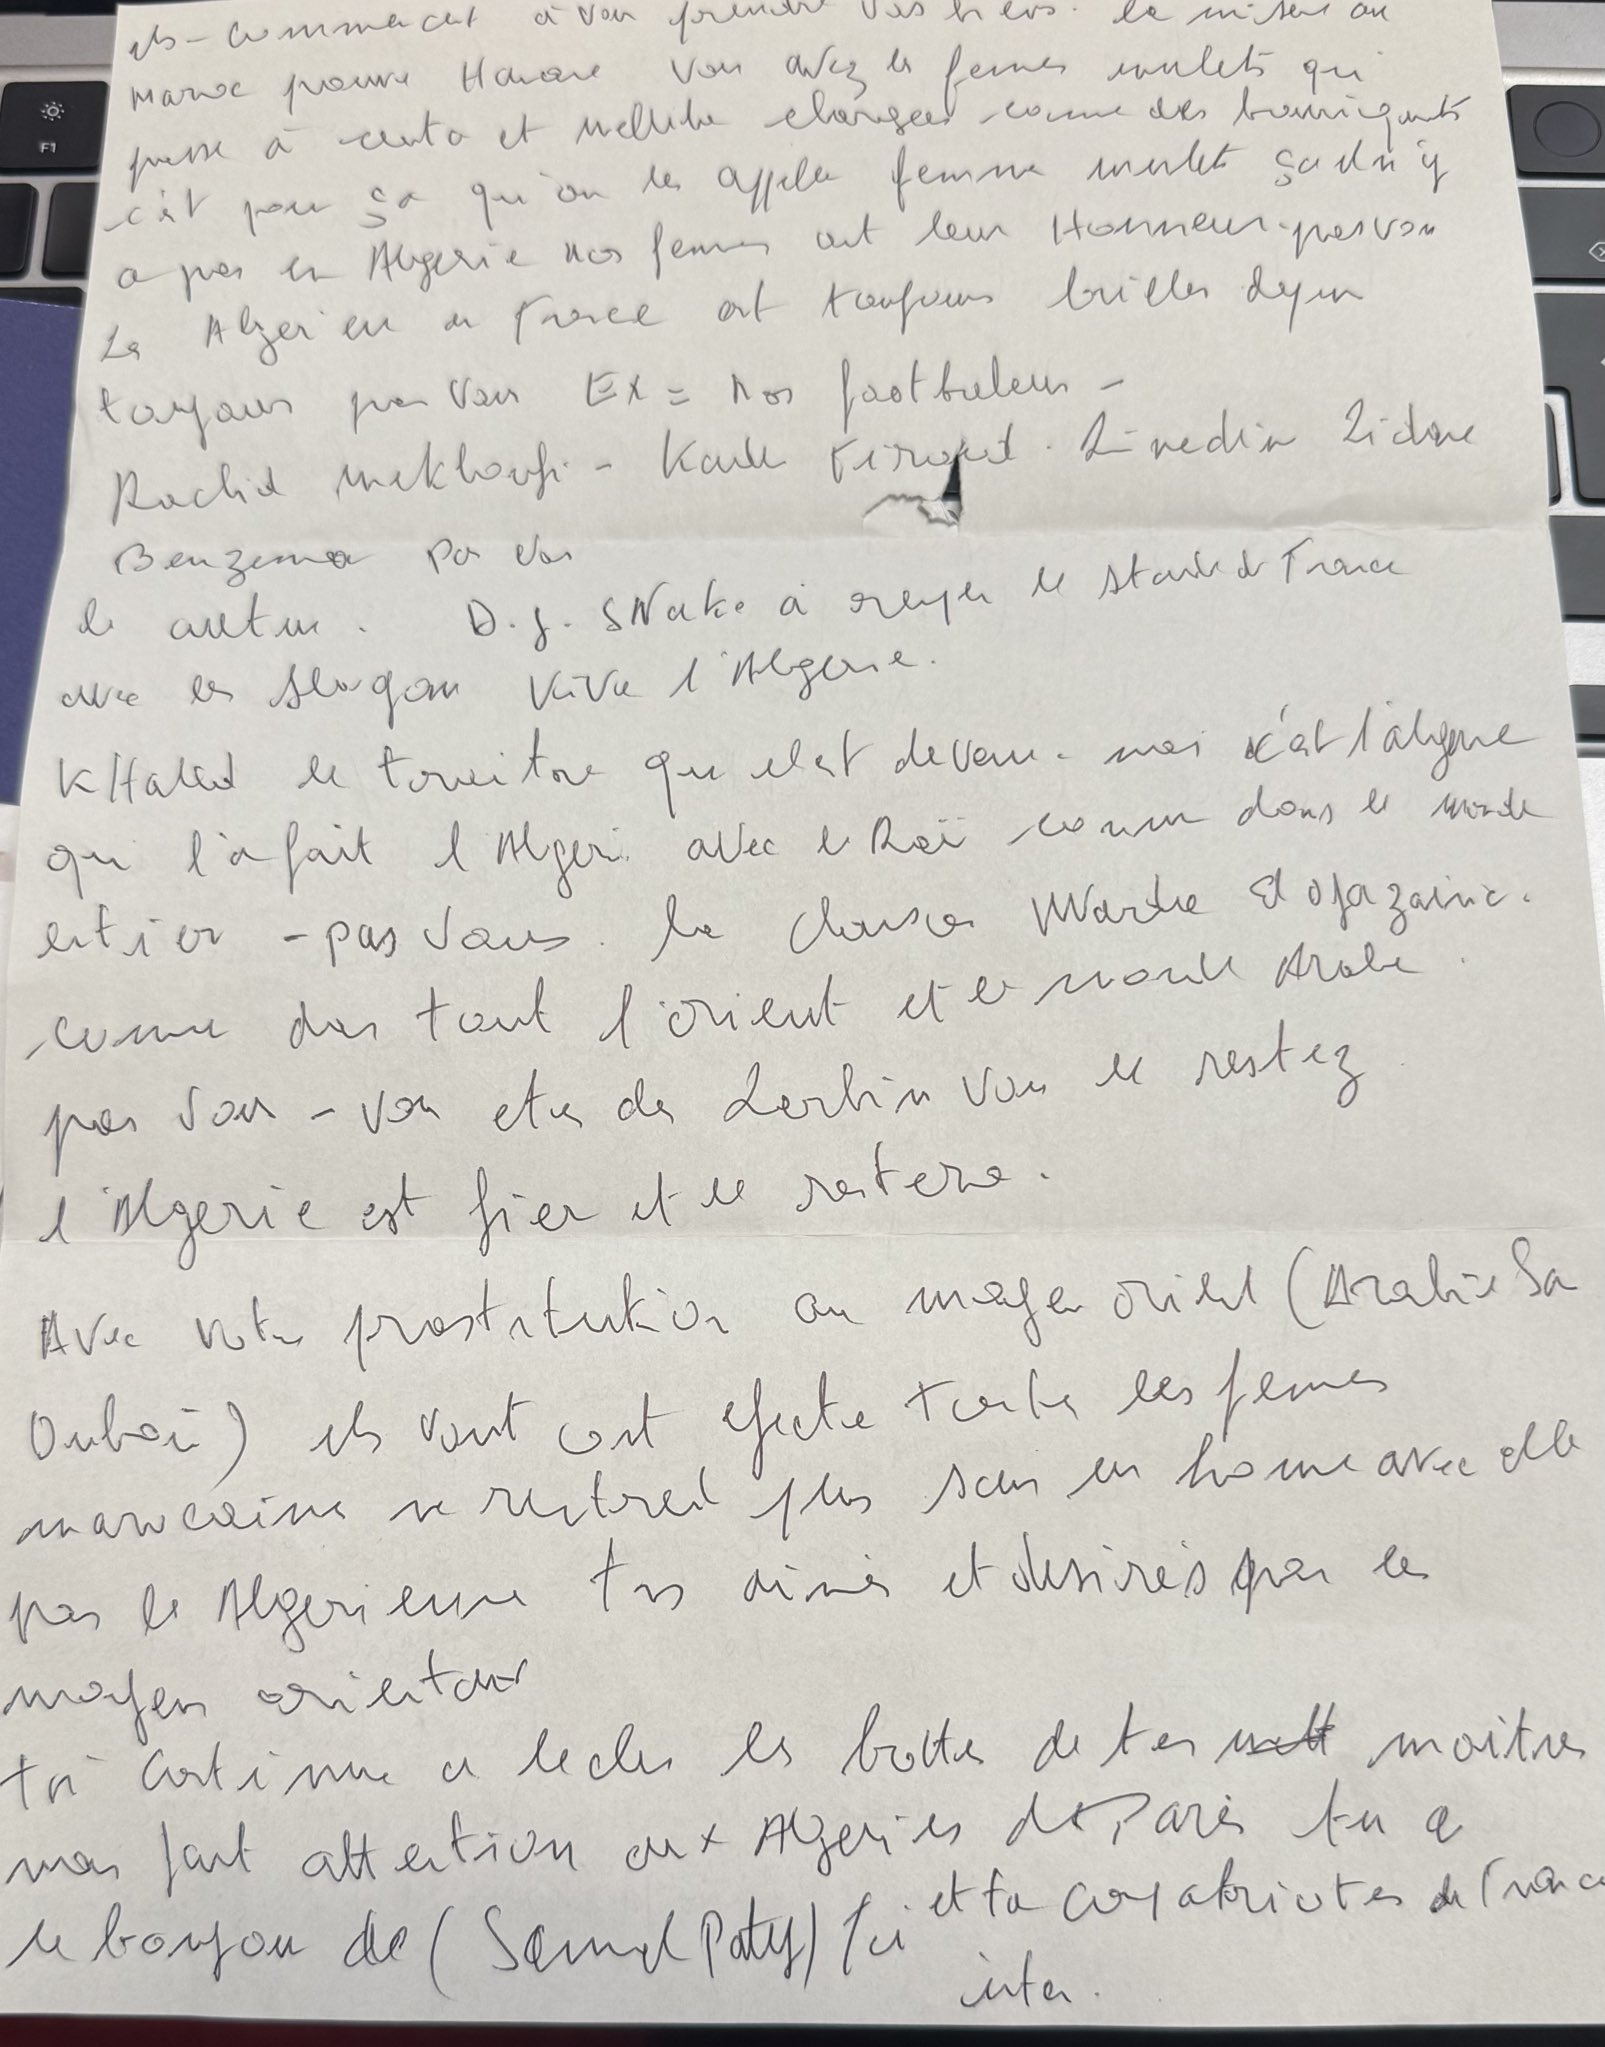 ils commencent à vous prendre vos biens. la misère au
Maroc pauvre Hanare vous avez les femes mulets qui
passe à ceuta et Mellilia chargées comme des bourriquots
c'est pour ça qu'on les appelle femme mulets ça il n'y
a pas en Algerie nos femmes ont leur Honneur. pas vous
Les Algerien de France ont toujours briller depuis
toujours pas vous Ex = Nos footbaleurs -
Rachid Mekhloufi - Kader Firoud. Zinedin Zidane
Benzema pas vous
le autre. D.J. SNake à remplir le stade de France
avec les slogans Viva l'Algerie.
KHaled le touriste que il est devenu - mais c'est l'algerie
qui l'a fait l'Algeri. avec le Raï connu dans le monde
entier - pas vous. la chanson Warda El djazairia.
connu dans tout l'orient et le monde Arabe.
pas vous - vous etes des Larbin vous le restez.
l'Algerie est fier et le restera.
Avec votre prostitution au moyen orient (Arabie Sa
Oubaï) ils vont ont toutes les femes
marocaine ne rentrent plus sans un home avec elle
pas les Algerienne très aimés et désirés par les
moyen orientaux
toi continue a lecher les bottes de tes maitres
mais fait attention aux Algeries de Paris tu a
le bonjour de (Samuel Paty) toi et ta compatriotes de France
inter.